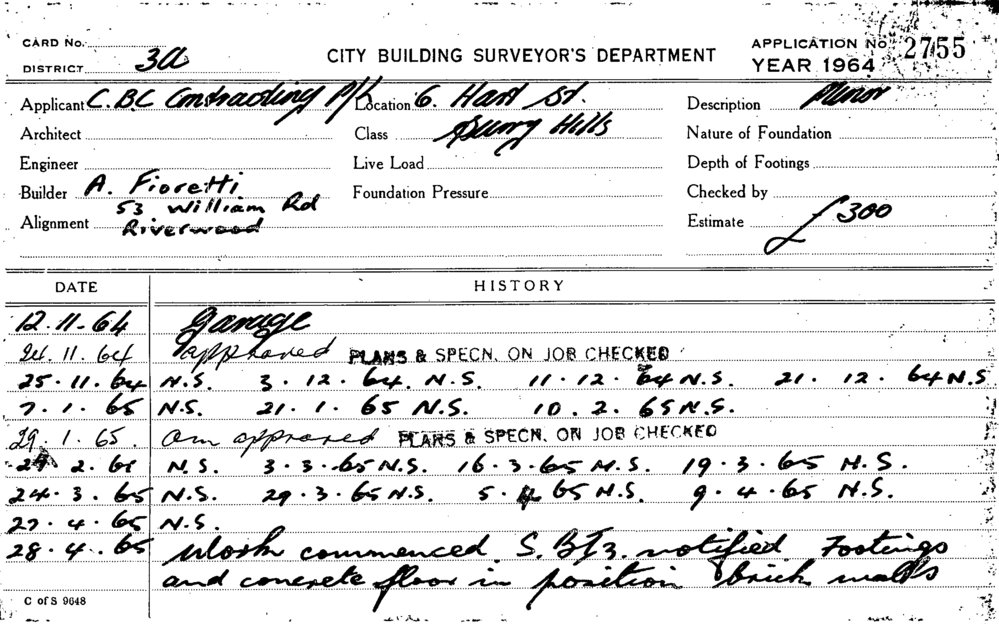 CARD No.
DISTRICT 3a
CITY BUILDING SURVEYOR'S DEPARTMENT
APPLICATION No. 2755
YEAR 1964
Applicant C.BC Contracting P/L
Location 6. Hart St.
Description Minor
Architect
Class Surry Hills
Nature of Foundation
Engineer
Live Load
Depth of Footings
Builder A. Fioretti
Foundation Pressure
Checked by
53 William Rd
Alignment Riverwood
Estimate £300
DATE HISTORY
12.11.64 Garage
24.11.64 approved PLANS & SPECN. ON JOB CHECKED
25.11.64 N.S. 3.12.64. N.S. 11.12.64 N.S. 21.12.64 N.S
7.1.65 N.S. 21.1.65 N.S. 10.2.65 N.S.
29.1.65. am approved PLANS & SPECN. ON JOB CHECKED
2. N.S. 3.3.65 N.S. 16.3.65 N.S. 19.3.65 N.S.
24.3.65 N.S. 29.3.65 N.S. 5.4 65 N.S. 9.4.65 N.S.
27.4.65 N.S.
28.4.65 Work commenced. S.B.I 3. notified. Footings
and concrete floor in position brick walls
C of S 9648